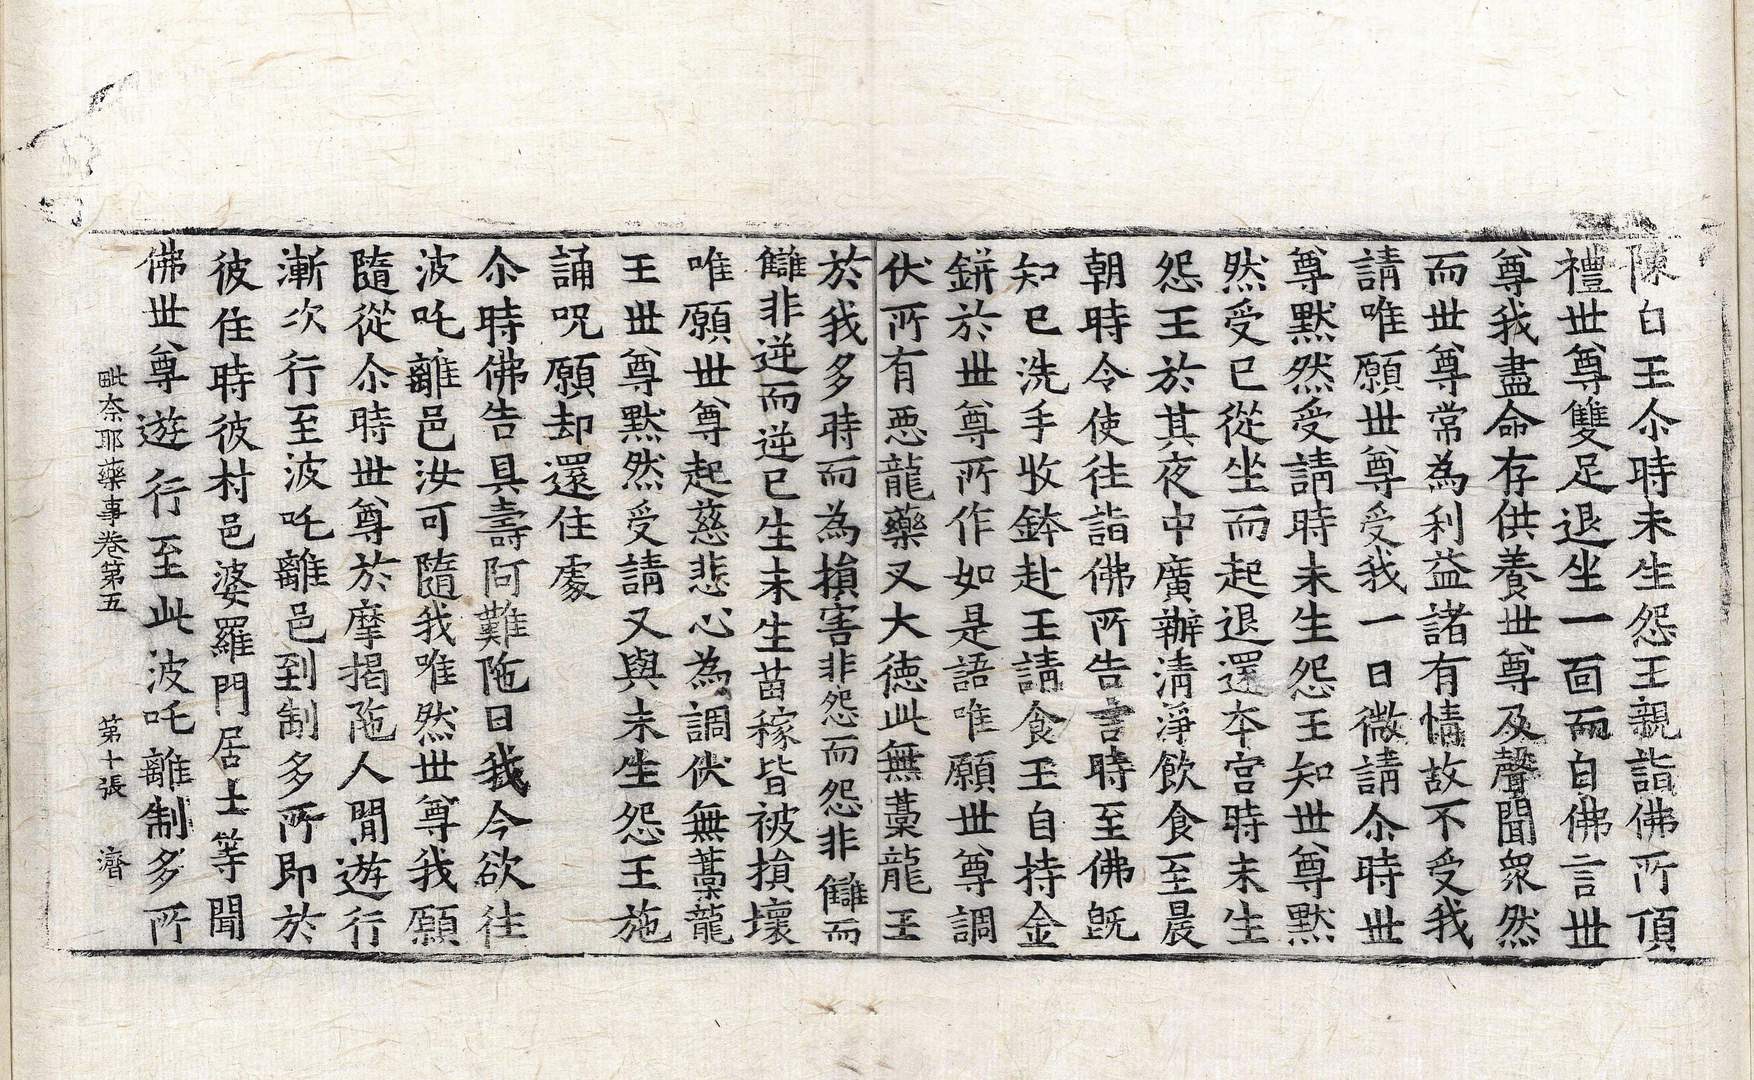 陳白王尒時未生怨王親詣佛所頂
禮世尊雙足退坐一面而白佛言世
尊我盡命存供養世尊及聲聞衆然
而世尊常為利益諸有情故不受我
請唯願世尊受我一日微請尒時世
尊默然受請時未生怨王知世尊默
然受已從坐而起退還本宮時未生
怨王於其夜中廣辦清淨飲食至晨
朝時令使往詣佛所告言時至佛旣
知已洗手收鉢赴王請食王自持金
缾於世尊所作如是語唯願世尊調
伏所有惡龍藥叉大德此無藁龍王
於我多時而為損害非怨而怨非讎而
讎非逆而逆已生未生苗稼皆被損壞
唯願世尊起慈悲心為調伏無藁龍
王世尊默然受請又與未生怨王施
誦呪願却還住處
尒時佛告具壽阿難陁曰我今欲往
波吒離邑汝可隨我唯然世尊我願
隨從尒時世尊於摩揭陁人閒遊行
漸次行至波吒離邑到制多所即於
彼住時彼村邑婆羅門居士等聞
佛世尊遊行至此波吒離制多所
毗奈耶藥事卷第五 第十張 濟